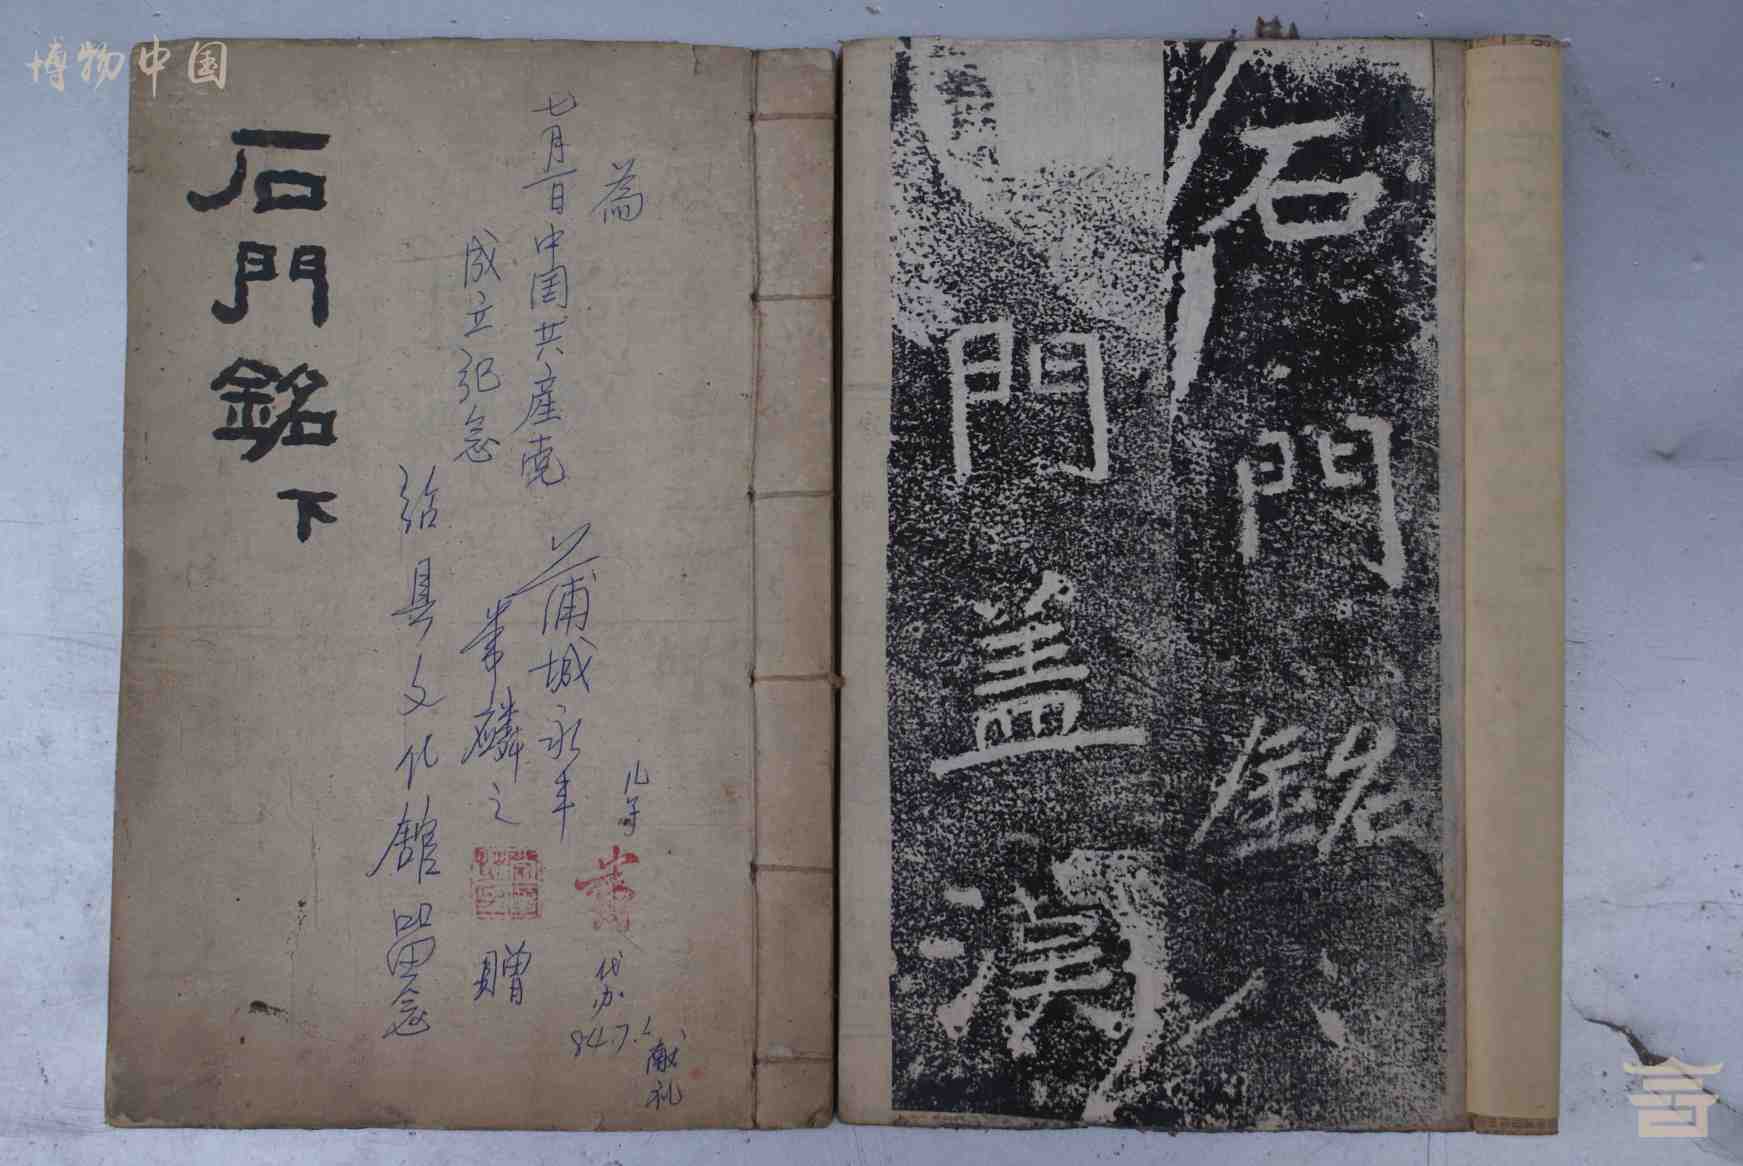 博物中国
石門銘下
為
七月一日中国共產党
成立纪念
蒲城永丰
麟之
贈
给县文化館留念
儿子
代办
84.7.1
献礼
石門銘
門盖漢